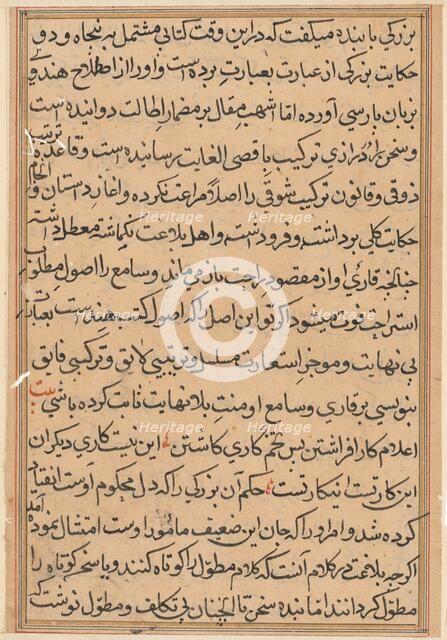 بزرکی با بنده میکفت که درین وقت کتابی مشتمل بر پنجاه و دو
حکایت بزرکی از عبارت بعبارت برده است و او را از اصطلاح هندوی
بزبان پارسی آورده اما اشهب مقال بر مضمار اطالت دوانیده است
و سخن را در درازی ترکیب باقصی الغایت رسانیده است و قاعده ترتیب
ذوقی و قانون ترکیب شوقی را اصلا مراعت نکرده و اغاز داستان و انجام
حکایت کلی برداشته و فرو داشته و اهل بلاغت نکماشته معطل داشته
چنانچه قاری او از مقصود راحت باز می ماند و سامع را اصول مطلوب
استراحت فوت میشود اکر تو این اصل را که اصول کتب هندست بعبارت
بی نهایت و موجز استعارت مسلسل و ترتیبی لائق و ترکیبی فائق
بنویسی بر قاری و سامع او منت بلا نهایت ثابت کرده باشی بیت
اعلام کار افراشتن پس تخم کاری کاشتن این نیست کاری دیکران
این کار تست این کار تست حکم آن بزرکی را که دل محکوم اوست انقیاد
کرده شد و امر او را که جان این ضعیف مامور اوست امتثال نموده آمد
اکرچه بلاغت در کلام آنست که کلام مطول را کوتاه کنند و یا سخن کوتاه را
مطول کردانند اما بنده سخن تا آنچنان بی تکلف و مطول نوشت که
Heritage
Heritage
Heritage
Heritage
Heritage
Heritage